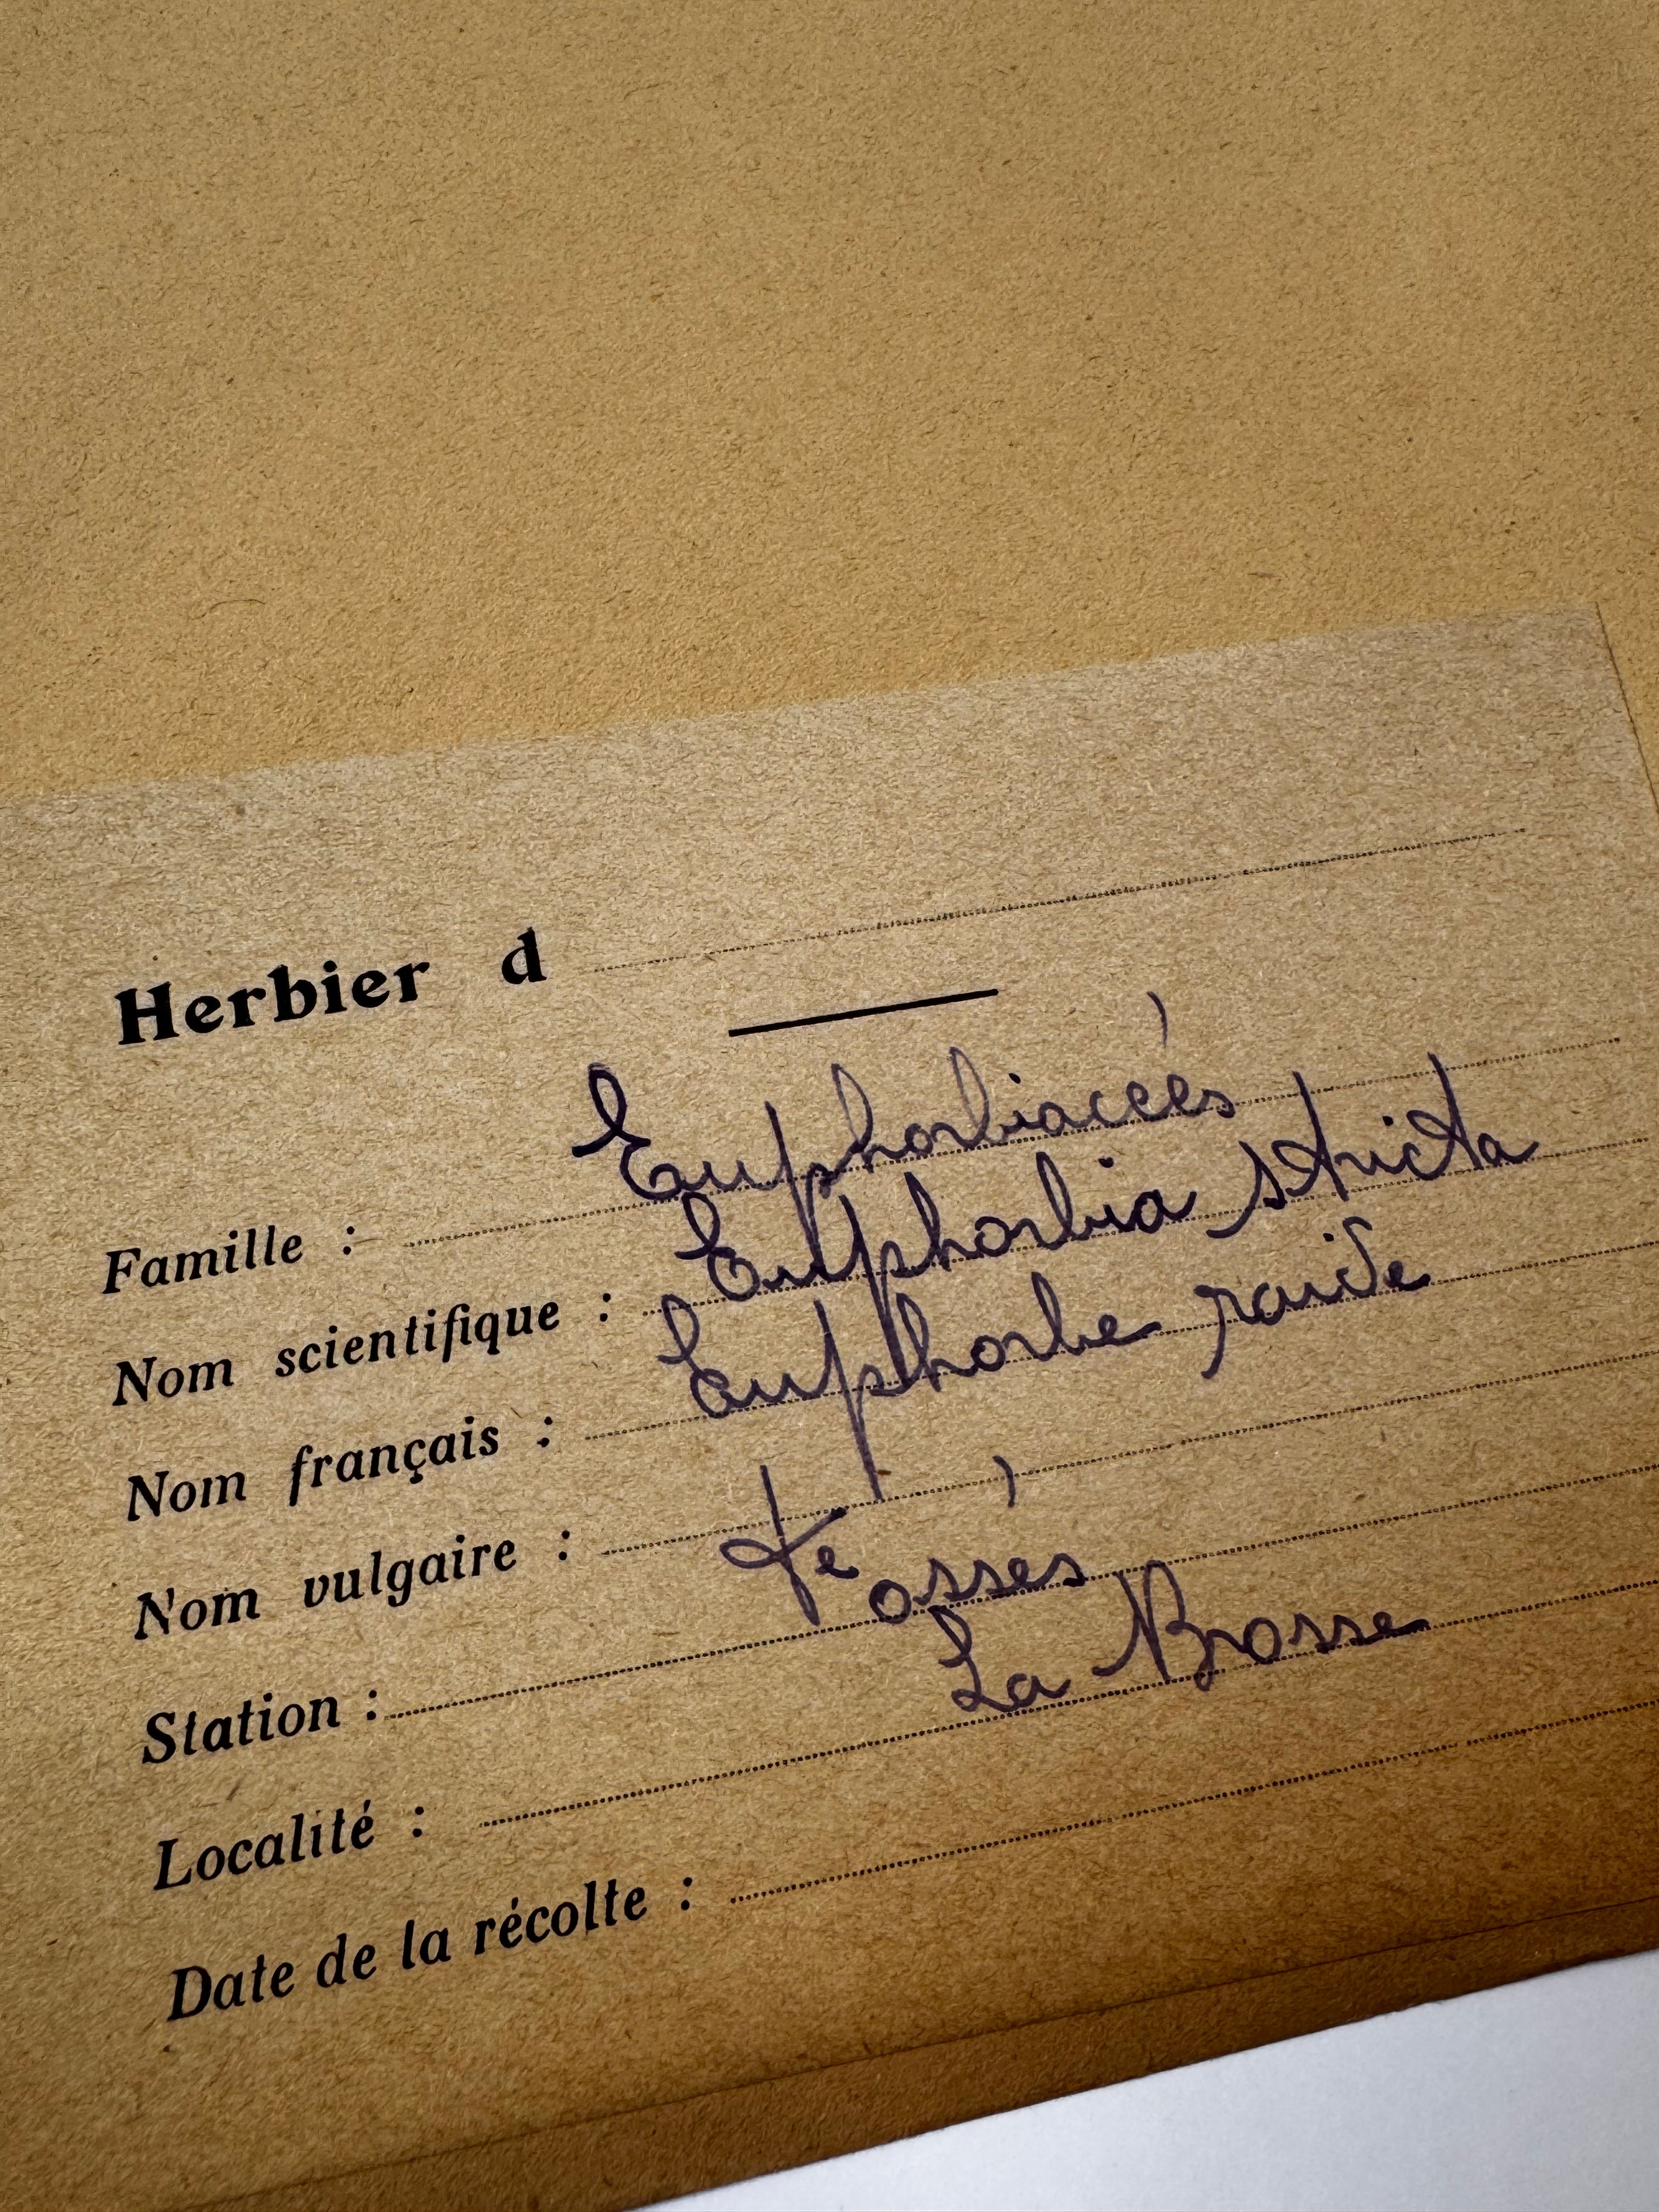 Herbier d
Famille : Euphorbiacées
Nom scientifique : Euphorbia stricta
Nom français : Euphorbe raide
Nom vulgaire :
Station : Fossés
Localité : La Brosse
Date de la récolte :